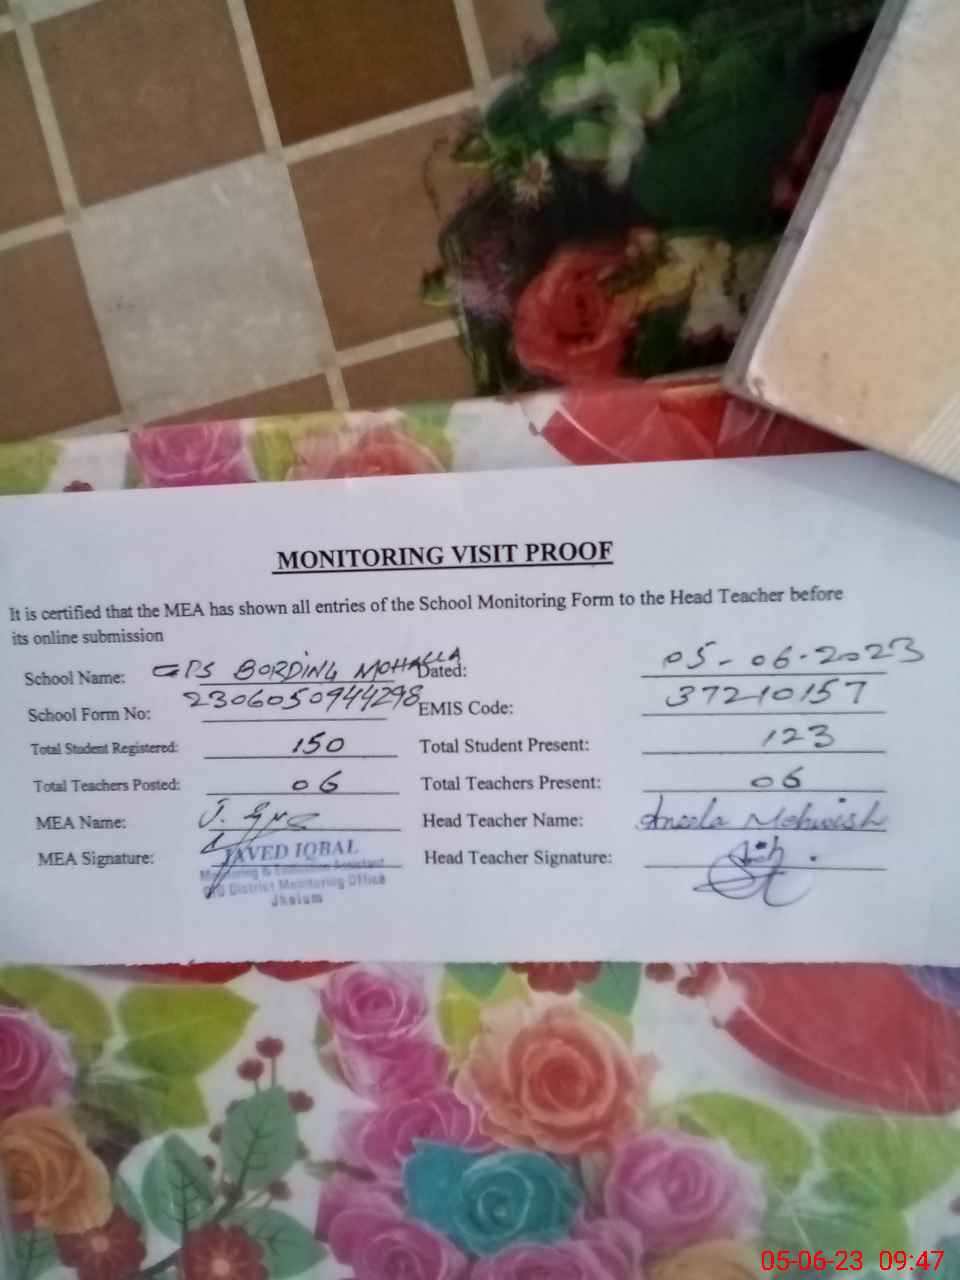 MONITORING VISIT PROOF
It is certified that the MEA has shown all entries of the School Monitoring Form to the Head Teacher before
its online submission
School Name: GPS BORDING MOHALLA Dated: 05-06-2023
School Form No: 2306050944298 EMIS Code: 37210157
Total Student Registered: 150 Total Student Present: 123
Total Teachers Posted: 06 Total Teachers Present: 06
MEA Name: Head Teacher Name: Aneela Mehwish
MEA Signature: Head Teacher Signature:
JAVED IQBAL
Monitoring & Evaluation Assistant
O/O District Monitoring Office
Jhelum
05-06-23 09:47